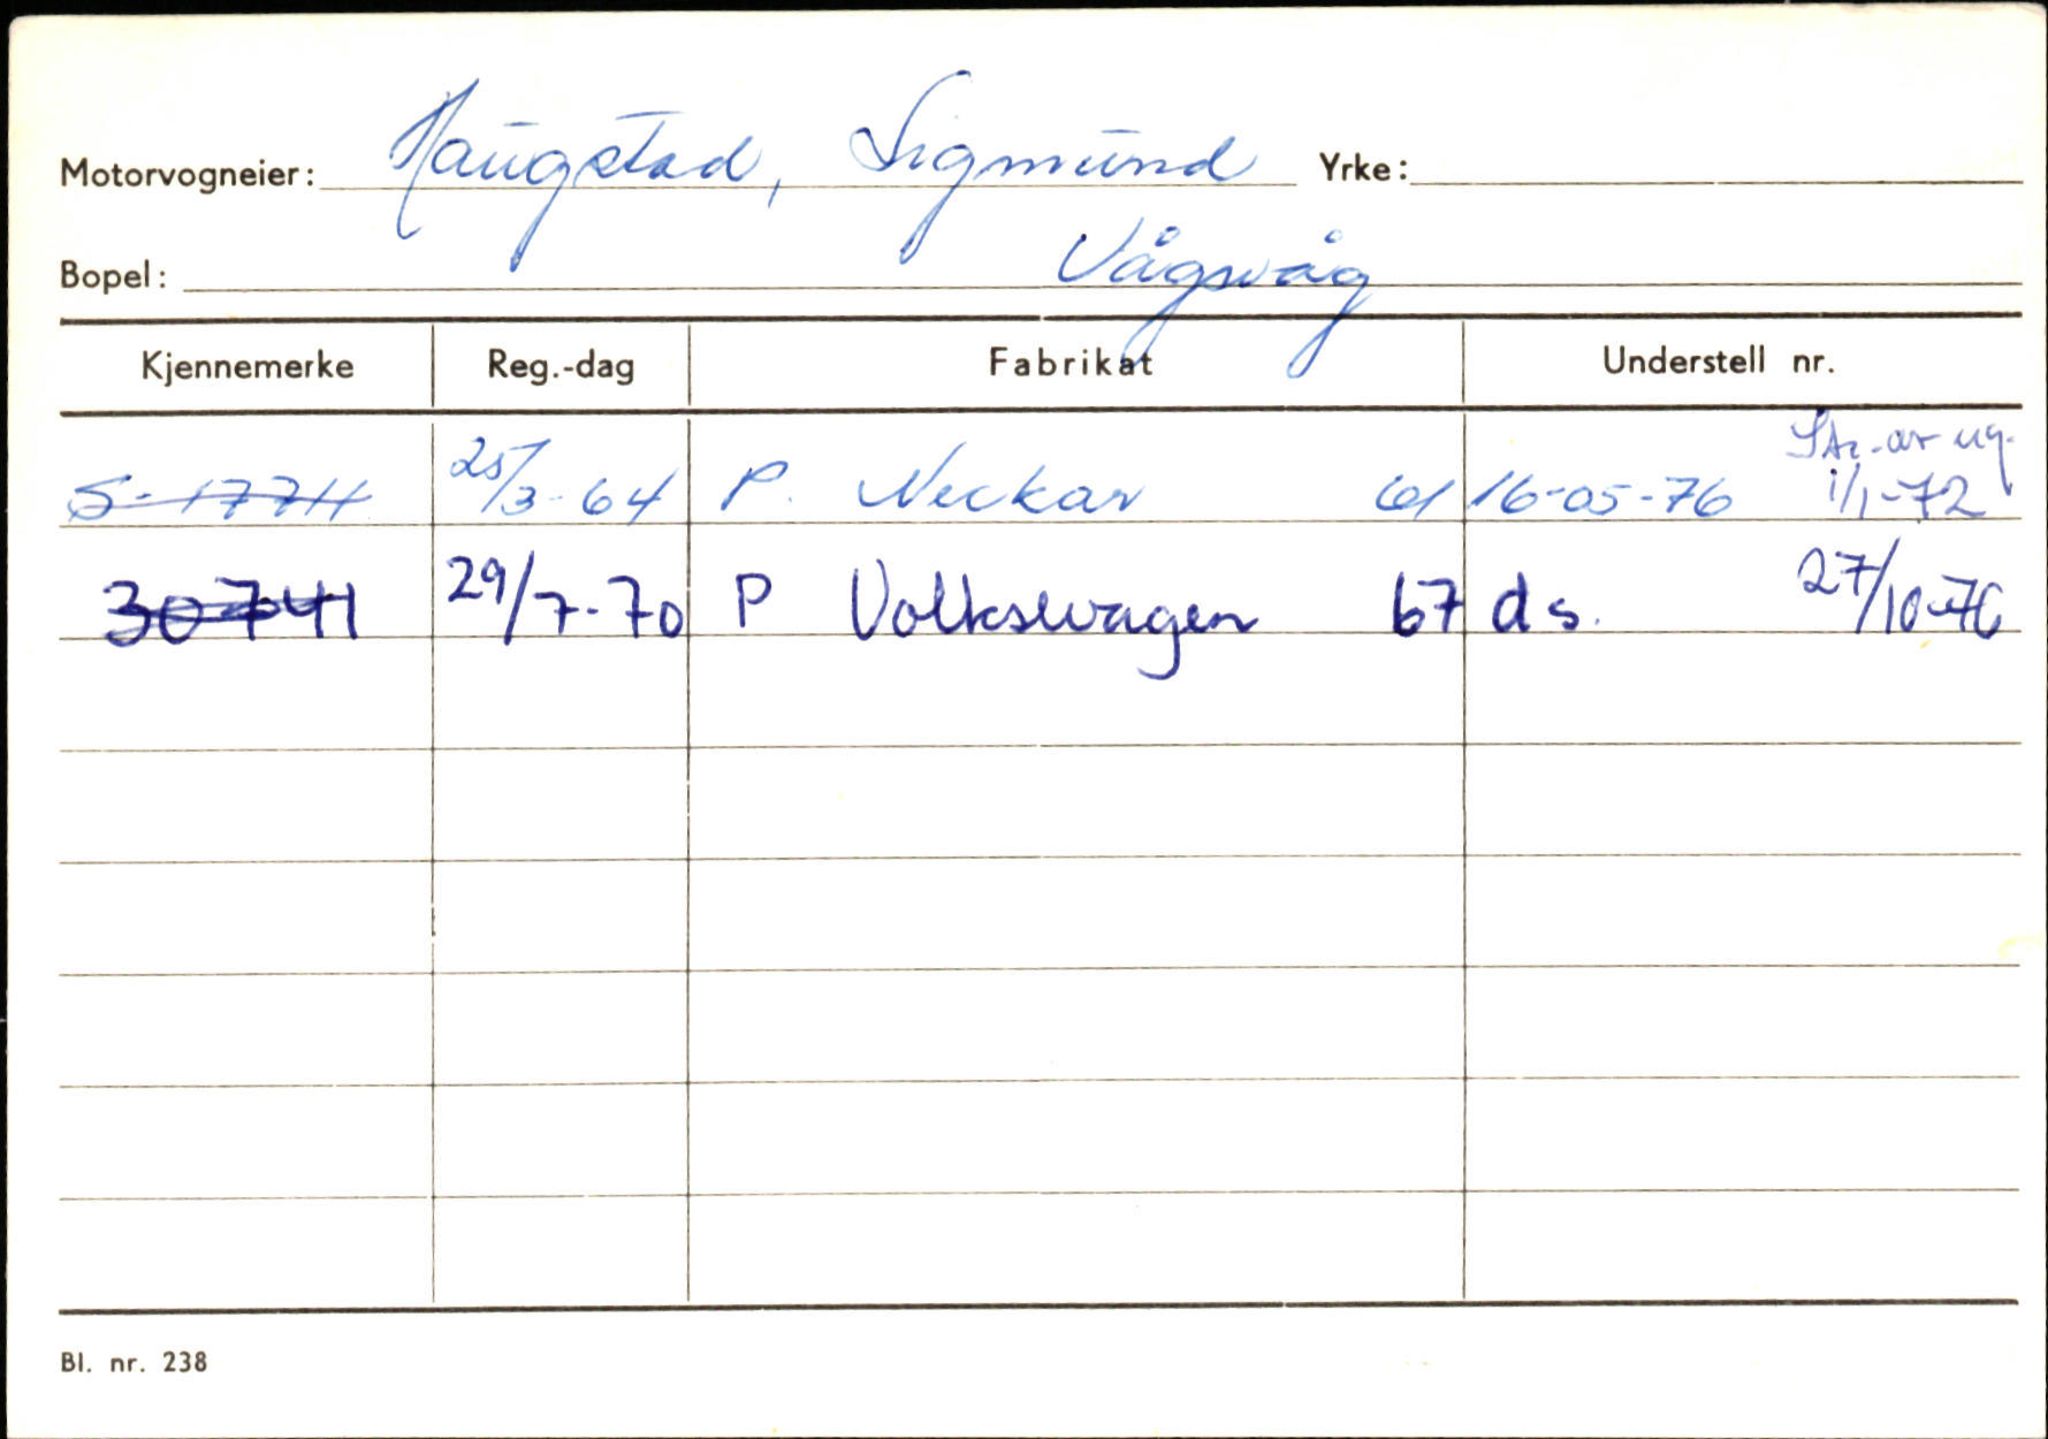 Motorvogneier: Haugstad, Sigmund Yrke:
Bopel: Vågsvåg
Kjennemerke Reg.-dag Fabrikat Understell nr.
S-17711 25/3-64 P. Neckar 61 16-05-76 Str. av reg. 1/1-72
30741 29/7-70 P Volkswagen 67 ds. 27/10-76
Bl. nr. 238